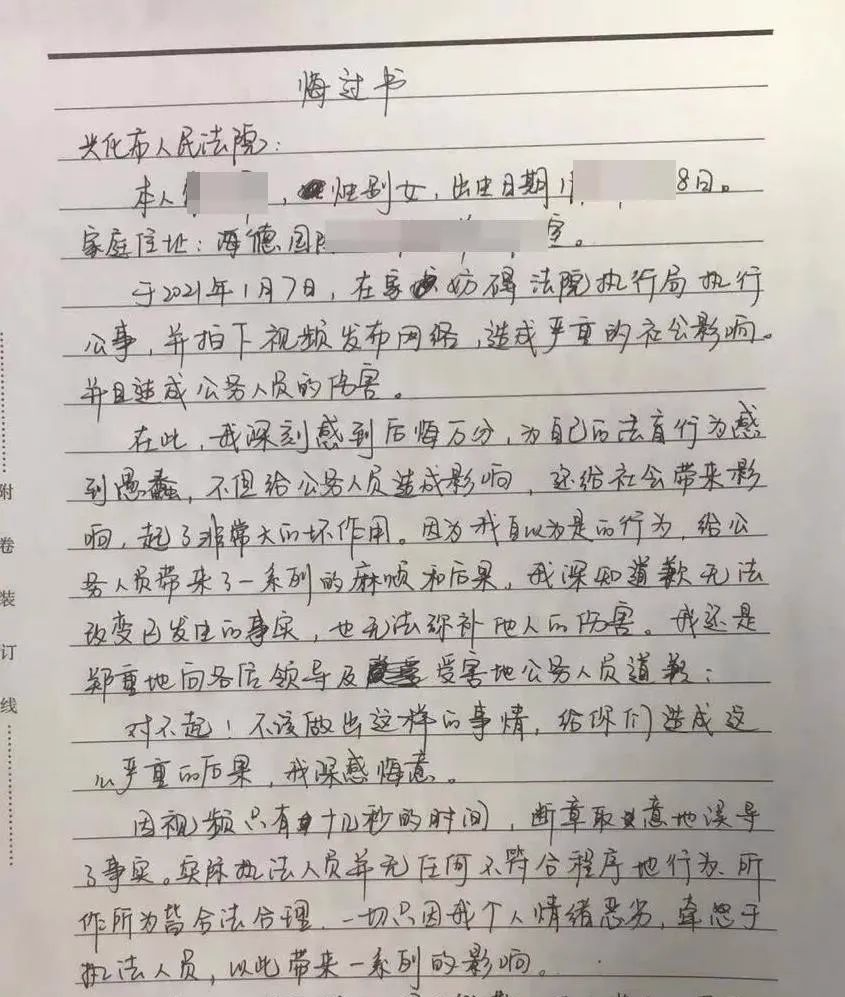 悔过书
兴化市人民法院：
本人，性别女，出生日期1 8日。
家庭住址：海德国 室。
于2021年1月7日，在家妨碍法院执行局执行
公事，并拍下视频发布网络，造成严重的社公影响。
并且造成公务人员的伤害。
在此，我深刻感到后悔万分，为自己的法盲行为感
到愚蠢，不但给公务人员造成影响，还给社会带来影
响，起了非常大的坏作用。因为我自以为是的行为，给公
务人员带来了一系列的麻烦和后果，我深知道歉无法
改变已发生的事实，也无法弥补他人的伤害。我还是
郑重地向各位领导及受害地公务人员道歉：
对不起！不该做出这样的事情，给你们造成这
么严重的后果，我深感悔意。
因视频只有十几秒的时间，断章取意地误导
了事实。实际执法人员并无任何不符合程序地行为、所
作所为皆合法合理，一切只因我个人情绪恶劣，牵怒于
执法人员，以此带来一系列的影响。
附卷装订线